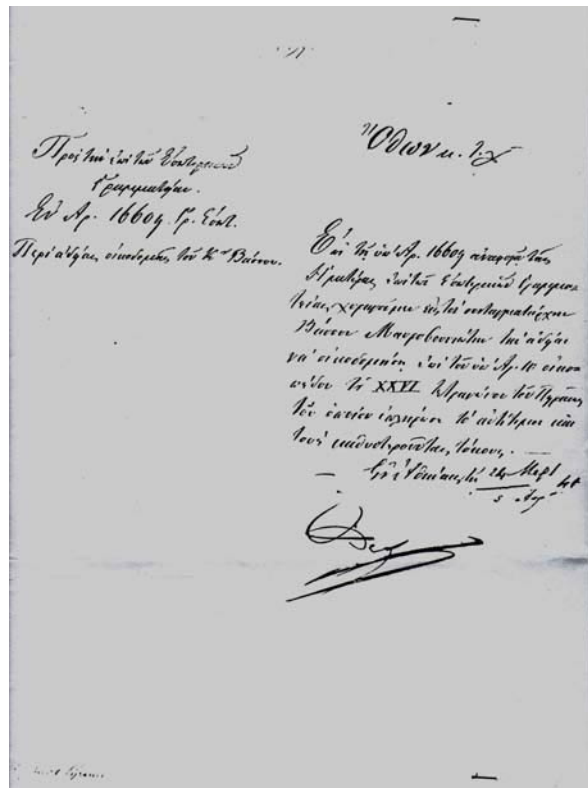 Πρὸς τὴν ἐπὶ τῶν Ἐσωτερικῶν
Γραμματείαν.
Ἐν Ἀρ. 16609. Γρ. Ἐσωτ.
Περὶ ἀδείας οἰκοδομῆς τοῦ Κου Βάσσου.
Ὄθων κ.τ.λ.
Ἐπὶ τῇ ὑπ' Ἀρ. 16609 ἀναφορᾷ τῆς
Ἡμετέρας ἐπὶ τῶν Ἐσωτερικῶν Γραμμα-
τείας, χορηγοῦμεν εἰς τὸν συνταγματάρχην
Βάσσον Μαυροβουνιώτην τὴν ἄδειαν
νὰ οἰκοδομήσῃ ἐπὶ τοῦ ὑπ' Ἀρ. 10 οἰκο-
πέδου τοῦ XXVI τετραγώνου τοῦ Πειραιῶς
τοῦ ὁποίου ἐπλήρωσε τὸ ἀντίτιμον καὶ
τοὺς καθυστεροῦντας τόκους.
Ἐν Ἀθήναις τῇ 24 Μαρτ
5 Απρ